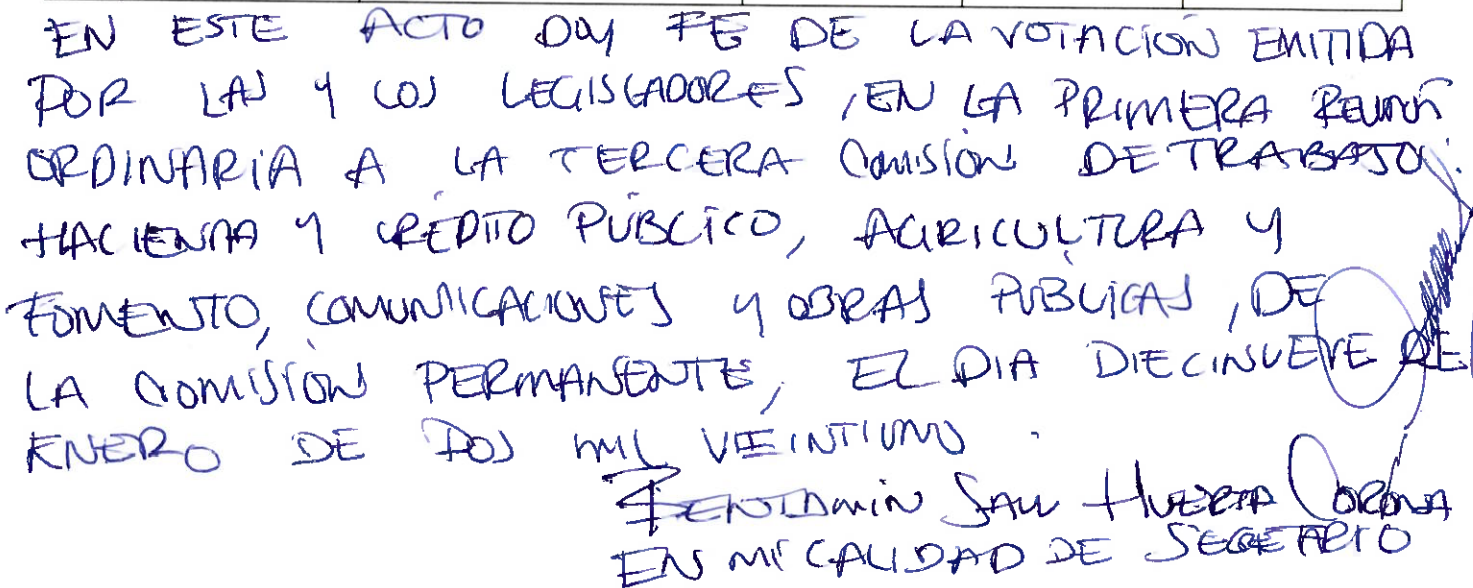 EN ESTE ACTO DOY FE DE LA VOTACIÓN EMITIDA
POR LAS Y LOS LEGISLADORES, EN LA PRIMERA REUNIÓN
ORDINARIA A LA TERCERA COMISIÓN DE TRABAJO:
HACIENDA Y CRÉDITO PÚBLICO, AGRICULTURA Y
FOMENTO, COMUNICACIONES Y OBRAS PÚBLICAS, DE
LA COMISIÓN PERMANENTE, EL DIA DIECINUEVE DE
ENERO DE DOS MIL VEINTIUNO.
BENJAMIN SAUL HUERTA CORONA
EN MI CALIDAD DE SECRETARIO